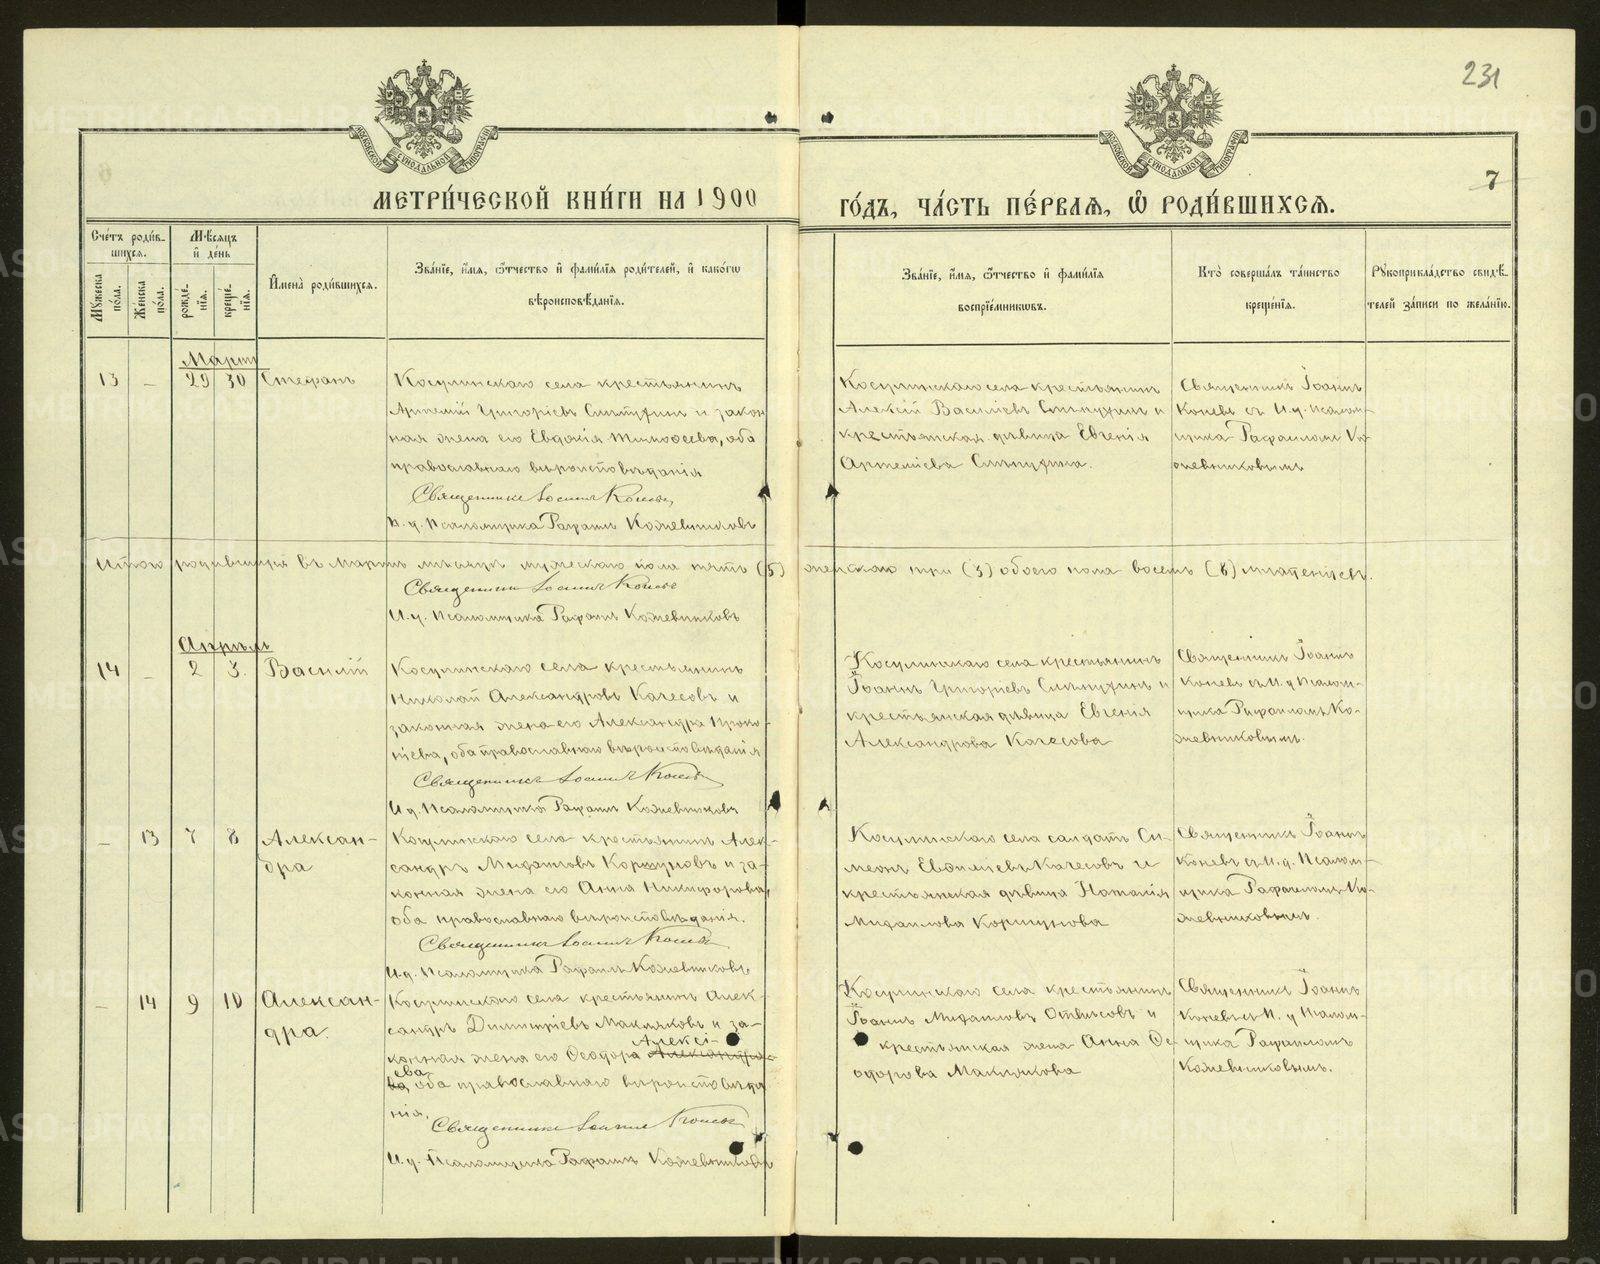 231
7
МОСКОВСКОЙ СѴНОДАЛЬНОЙ ТИПОГРАФІИ
МОСКОВСКОЙ СѴНОДАЛЬНОЙ ТИПОГРАФІИ
МЕТРИ́ЧЕСКОЙ КНИ́ГИ НА 1900
ГО́ДЪ, ЧА́СТЬ ПЕ́РВАѦ, Ѽ РОДИ́ВШИХСѦ.
Сче́тъ роди́в-
шихсѧ.
Мꙋ́жеска по́ла.
Же́нска по́ла.
Мѣ́сѧцъ
и҆ де́нь
рожде́-
нїѧ.
креще́-
нїѧ.
И҆мена̀ роди́вшихсѧ.
Зва́нїе, и҆́мѧ, ѻ҆́тчество и҆ фами́лїѧ роди́телей, и҆ како́гѡ
вѣроисповѣ́данїѧ.
Зва́нїе, и҆́мѧ, ѻ҆́тчество и҆ фами́лїѧ
воспрїе́мникѡвъ.
Кто̀ соверша́лъ та́инство
креще́нїѧ.
Рꙋкоприкла́дство свидѣ́-
телей за́писи по жела́нїю.
Мартъ
13 — 29 30 Стефанъ
Косулинскаго села крестьянинъ
Артемій Григоріевъ Слѣпухинъ и закон
ная жена его Евдокія Тимоѳеева, оба
православнаго вѣроисповѣданія
Священникъ Іоаннъ Коневъ
И. д. Псаломщика Рафаилъ Кожевниковъ
Косулинскаго села крестьянинъ
Алексій Василіевъ Слѣпухинъ и
крестьянская дѣвица Евгенія
Артеміева Слѣпухина.
Священникъ Іоаннъ
Коневъ съ И. д. Псалом-
щика Рафаиломъ Ко-
жевниковымъ
Итого родившихся въ Мартѣ мѣсяцѣ мужескаго пола пять (5) женскаго три (3) обоего пола восемь (8) младенцевъ.
Священникъ Іоаннъ Коневъ
И. д. Псаломщика Рафаилъ Кожевниковъ
Апрѣль
14 — 2 3. Василій
Косулинскаго села крестьянинъ
Николай Александровъ Качесовъ и
законная жена его Александра Проко-
піева, оба православнаго вѣроисповѣданія
Священникъ Іоаннъ Коневъ
И. д. Псаломщика Рафаилъ Кожевниковъ
Косулинскаго села крестьянинъ
Іоаннъ Григоріевъ Слѣпухинъ и
крестьянская дѣвица Евгенія
Александрова Качесова
Священникъ Іоаннъ
Коневъ съ И. д Псалом-
щика Рафаиломъ Ко-
жевниковымъ.
— 13 7 8 Алексан-
дра
Косулинскаго села крестьянинъ Алек-
сандръ Михаиловъ Коршуновъ и за-
конная жена его Анна Никифорова,
оба православнаго вѣроисповѣданія.
Священникъ Іоаннъ Коневъ
И. д. Псаломщика Рафаилъ Кожевниковъ
Косулинскаго села солдатъ Си-
меонъ Евѳиміевъ Качесовъ и
крестьянская дѣвица Наталія
Михаилова Коршунова
Священникъ Іоаннъ
Коневъ съ И. д. Псалом-
щика Рафаиломъ Ко-
жевниковымъ.
— 14 9 10 Алексан-
дра.
Косулинскаго села крестьянинъ Алек-
сандръ Димитріевъ Макляковъ и за-
Алексі-
конная жена его Ѳеодора Александро-
ева
ва, оба православнаго вѣроисповѣда
нія.
Священникъ Іоаннъ Коневъ
И. д. Псаломщика Рафаилъ Кожевниковъ
Косулинскаго села крестьянинъ
Іоаннъ Михаиловъ Отвѣсовъ и
крестьянская жена Анна Ѳе
одорова Маклякова
Священникъ Іоаннъ
Коневъ съ И. д Псалом-
щика Рафаиломъ
Кожевниковымъ.
METRIKI.GASO-URAL.RU